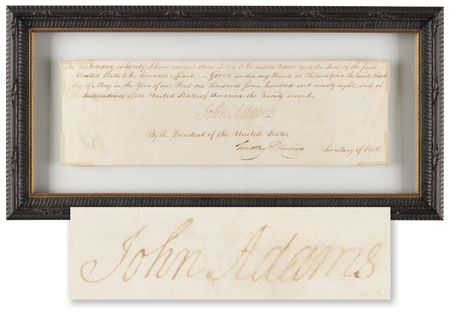 In Testimony whereof, I have caused these Letters to be made Patent, and the Seal of the
United States to be hereunto affixed. Given under my Hand, at Philadelphia the
day of May, in the Year of our Lord one thousand seven hundred and ninety eight, and of
Independence of the United States of America the Twenty second.
John Adams
By the President of the United States
Timothy Pickering Secretary of State
John Adams